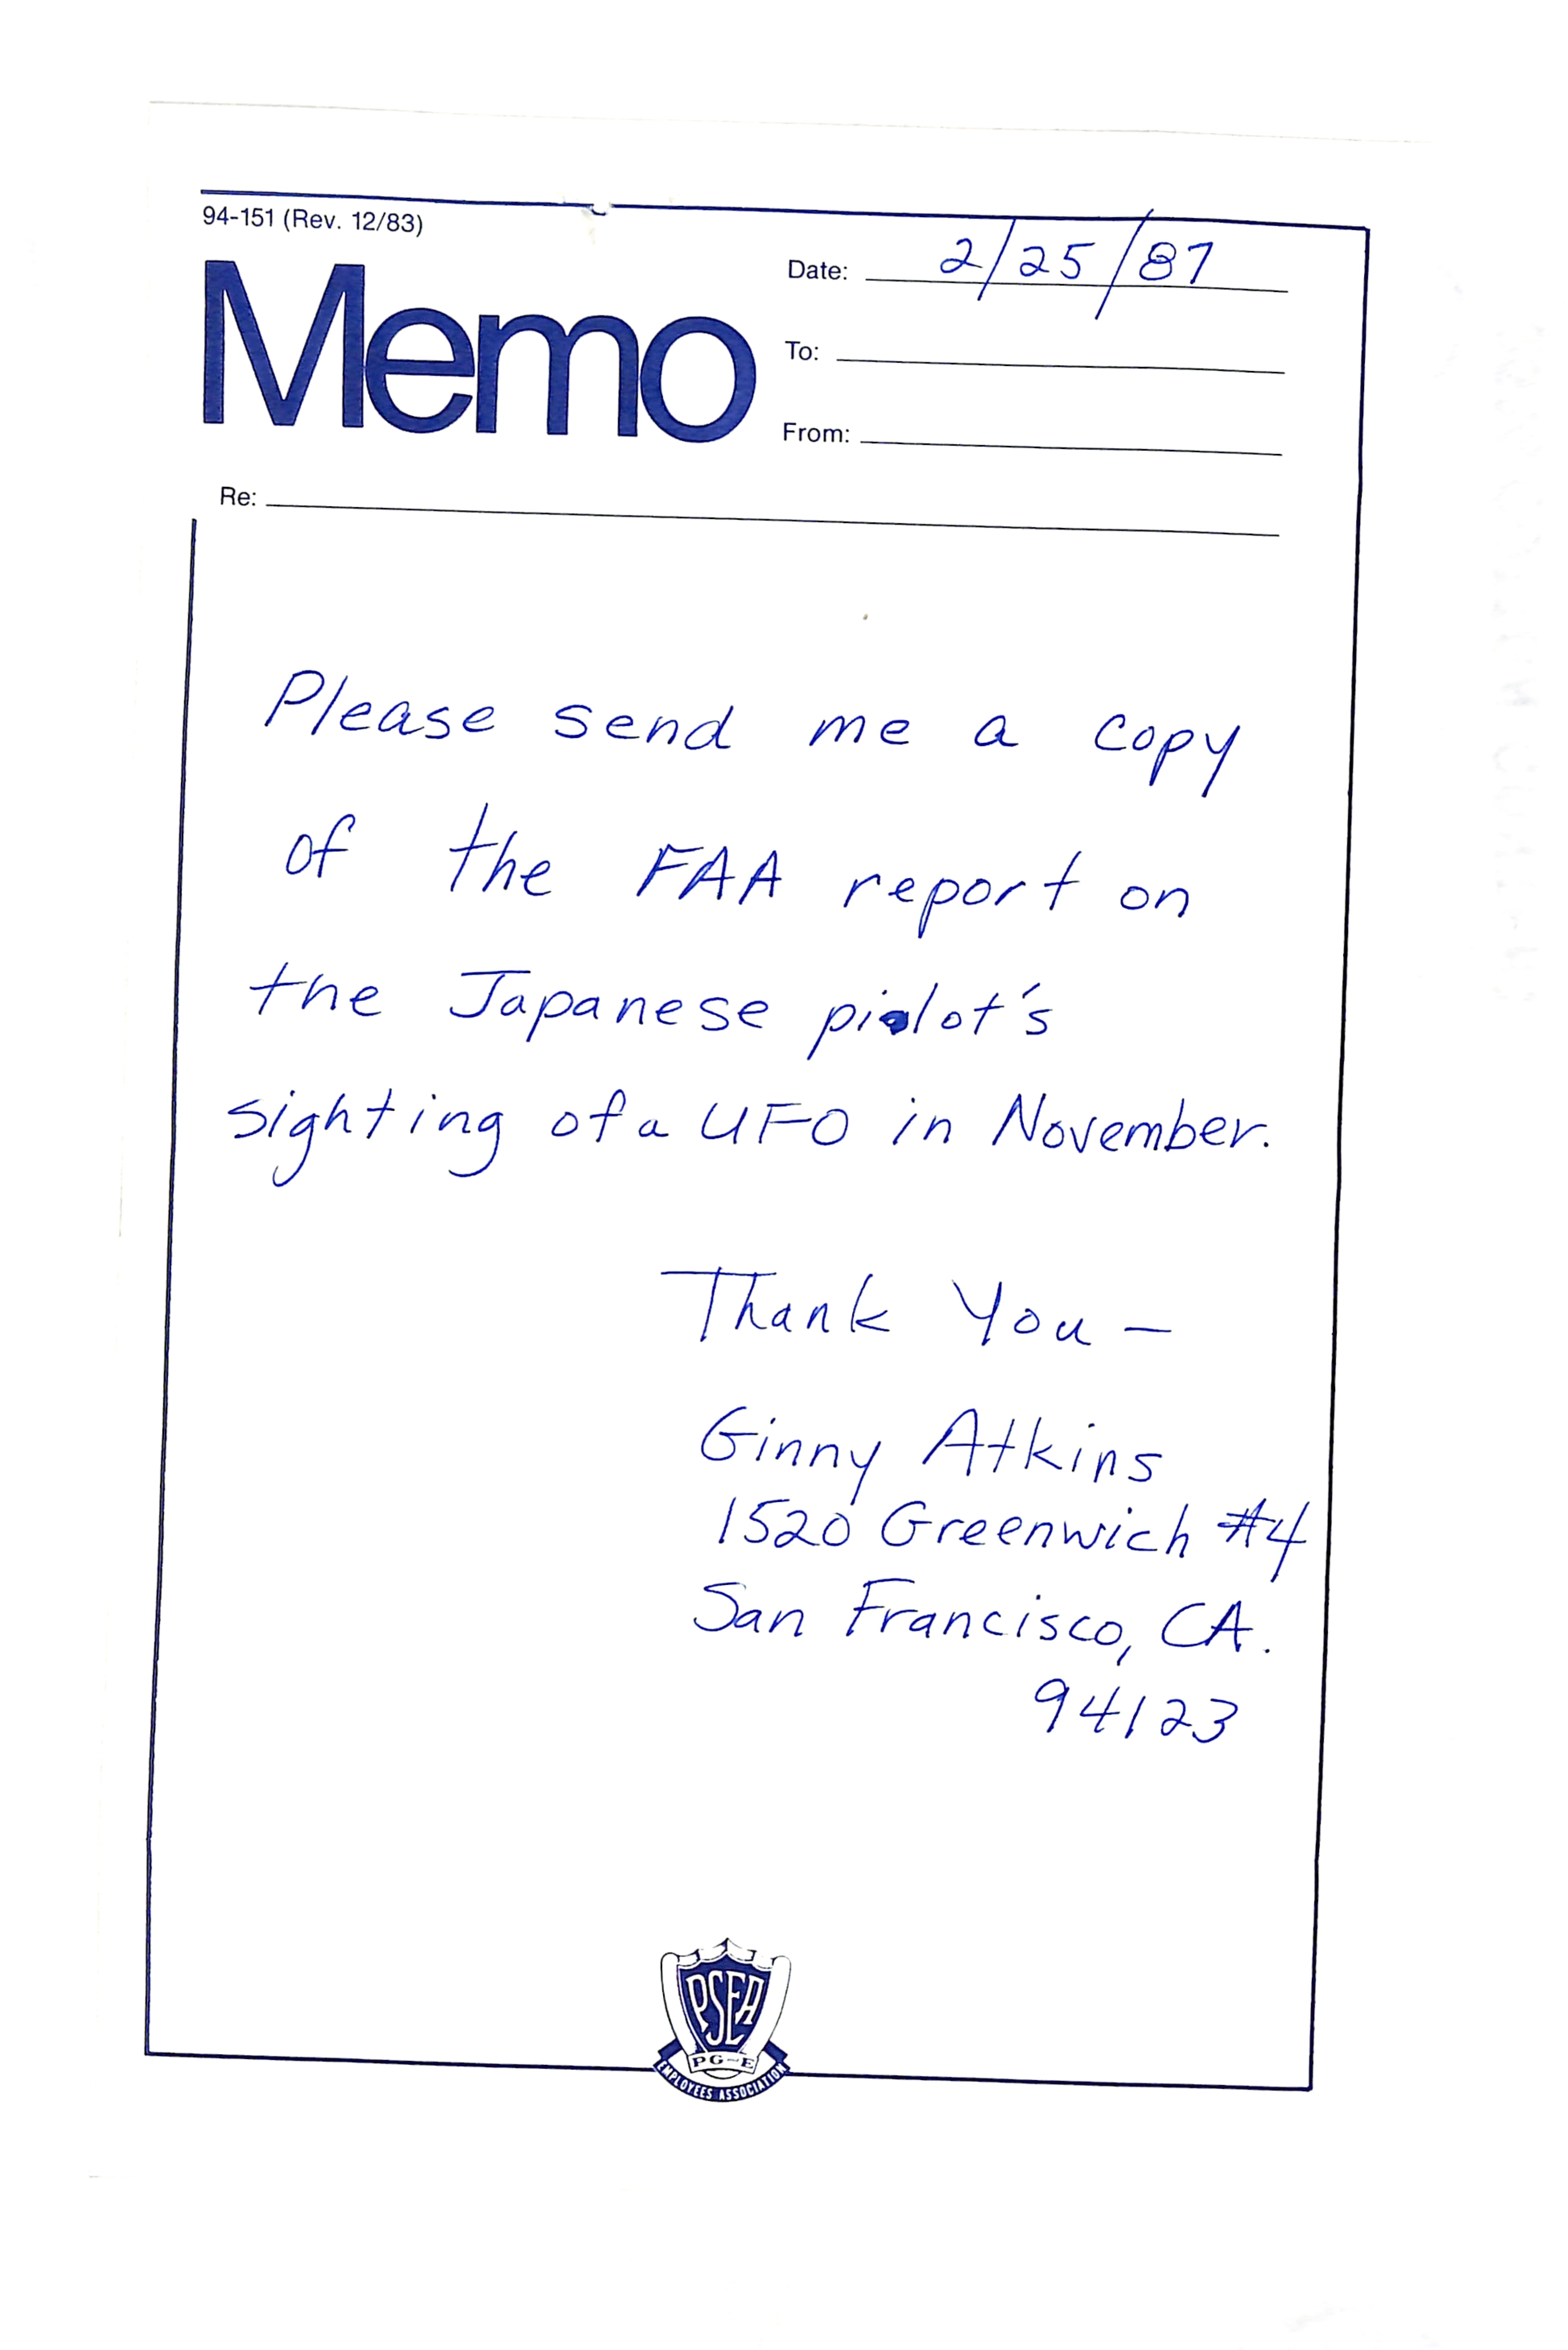 94-151 (Rev. 12/83)
Memo
Date: 2/25/87
To:
From:
Re:
Please send me a copy
of the FAA report on
the Japanese pilot's
sighting of a UFO in November.
Thank You –
Ginny Atkins
1520 Greenwich #4
San Francisco, CA.
94123
PSEA
PG-E
EMPLOYEES ASSOCIATION